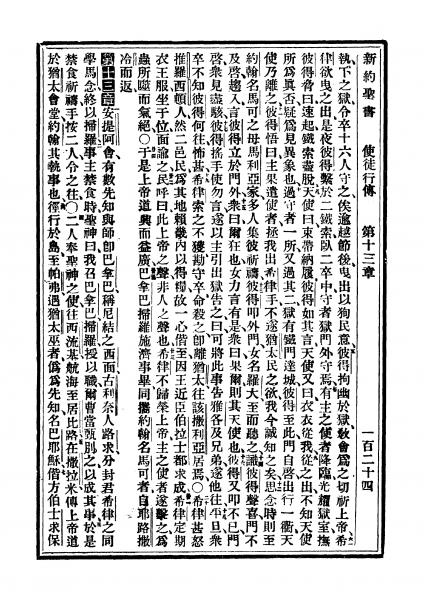 新約聖書 使徒行傳 第十三章 一百二十四
執下之獄令卒十六人守之俟逾越節後曳出以狥民意彼得拘幽於獄敎會爲之切祈上帝希
律欲曳之出是夜彼得繫於二鐵索臥二卒中守者獄門外守焉有主之使者降臨光耀獄室撫
彼得脅曰速起鐵索盡脫天使曰束帶納履彼得如其言天使又曰衣衣從我從之出不知天使
所爲眞否疑爲見異象也過守者一所又過其二獄有鐵門達城彼得至此門自啓出行一衢天
使乃離之彼得悟曰主果遣使者拯我出希律手不遂猶太民之欲我今誠知之矣思念時則至
約翰名馬可之母馬利亞家多人集彼祈禱彼得叩外門女名羅大至而聽之識彼得聲喜門不
及啓趨入言彼得立於門外衆曰爾狂也女力言有是衆曰果爾則其天使也彼得又叩不已門
啓衆見盡駭彼得搖手使勿言遂以主引出獄告之曰可將此事告雅各及兄弟遂他往平旦衆
卒不知彼得何往怖甚希律索之不獲勘守卒命殺之卽離猶太往該撒利亞居焉○希律甚怒
推羅西頓人然二邑民爲其地賴畿內以得糧故一心偕至因王近臣伯拉士都求成希律定期
衣王服坐于位面諭之民呼曰此上帝之聲非人之聲也希律不歸榮上帝主之使者遂擊之爲
蟲所噬而氣絕○于是上帝道興而益廣巴拿巴掃羅施濟事畢同攜約翰名馬可者自耶路撒
冷而返
第十三章安提阿會有數先知與師卽巴拿巴稱尼結之西面古利奈人路求分封君希律之同
學馬念終以掃羅事主禁食時聖神曰我召巴拿巴掃羅授以職爾曹當甄別之以成其事於是
禁食祈禱手按二人令之往○二人奉聖神之使往西流基航海至居比路在撒拉米傳上帝道
於猶太會堂約翰其執事也徑行於島至帕弗遇猶太巫者僞爲先知名巴耶穌偕方伯士求保